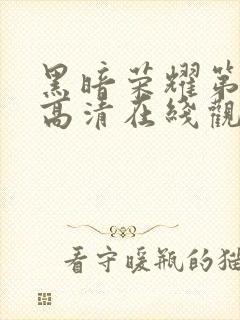 黑暗荣耀第
高清在线觀
看守暖瓶的猫